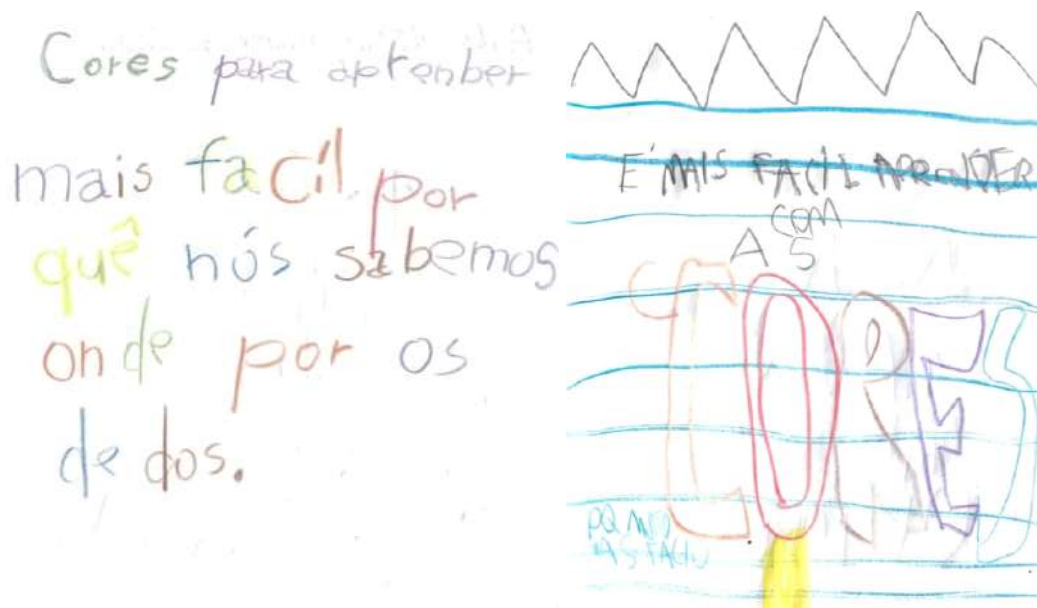 Cores para aprenber
mais facíl por
quê nós sabemos
onde por os
dedos.
E´MAIS FACIL APRENDER
COM
AS
CORES